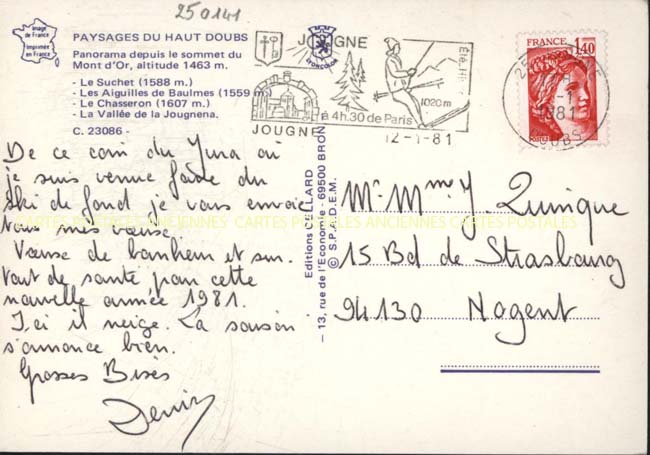 250141
Image
de France
Imprimée
en France
PAYSAGES DU HAUT DOUBS
Panorama depuis le sommet du
Mont d'Or, altitude 1463 m.
- Le Suchet (1588 m.)
- Les Aiguilles de Baulmes (1559 m)
- Le Chasseron (1607 m.)
- La Vallée de la Jougnena.
C. 23086 -
JOUGNE
Eté, Hiver
1020m
à 4h.30 de Paris
JOUGNE
12-1-81
FRANCE
1,40
25
1981
DOUBS
De ce coin du Jura où
je suis venue faire du
ski de fond je vous envoie
tous mes vœux.
Vœux de bonheur et sur
tout de santé pour cette
nouvelle année 1981.
Ici il neige. La saison
s'annonce bien.
Grosses Bises
Editions CELLARD
- 13, rue de l'Economie - 69500 BRON
© S.P.A.D.E.M.
Mr Mme Y Quinque
15 Bd de Strasbourg
94130 Nogent
CARTES POSTALES ANCIENNES CARTES POSTALES ANCIENNES CARTES POSTALES